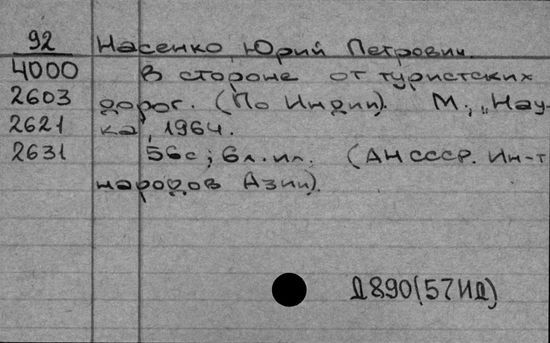 92 Насенко, Юрий Петрович.
4000 В стороне от туристских
2603 дорог. (По Индии). М., „Нау
2621 ка, 1964.
2631 56с; 6л.ил. (АН СССР. Ин-т
народов Азии).
Д890(57ИД)